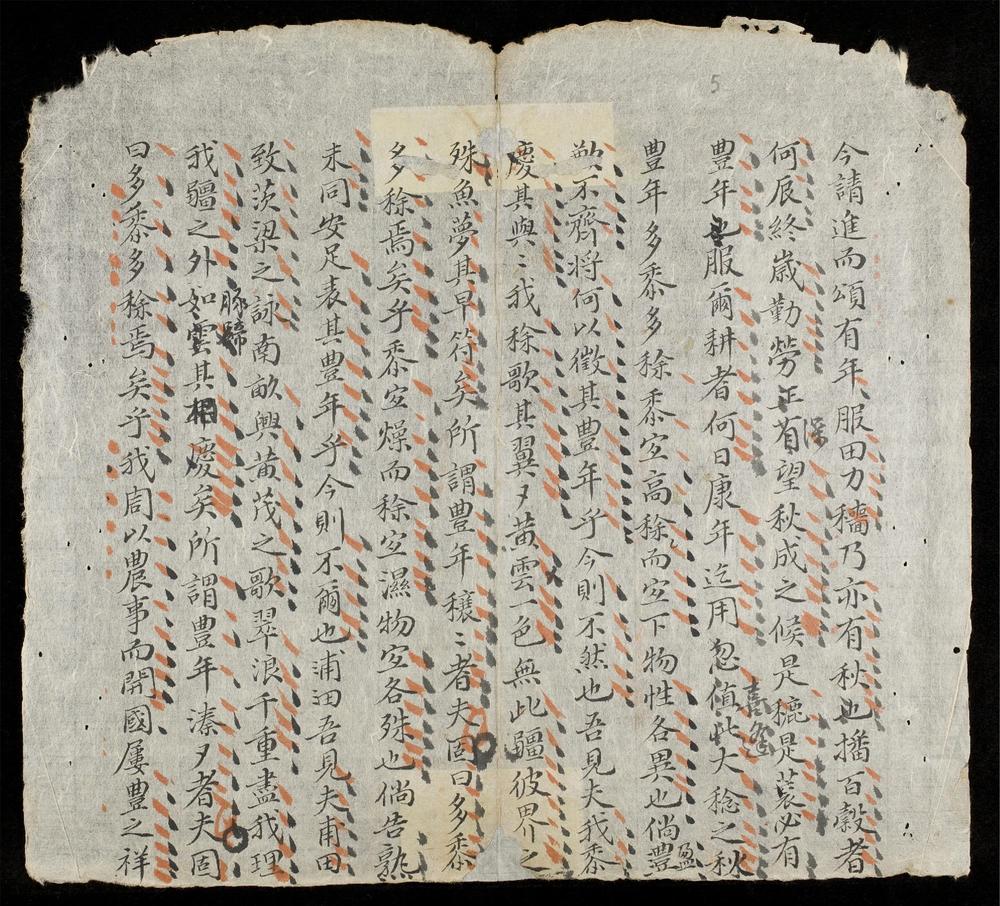 今請進而頌有年服田力穡乃亦有秋也播百穀者
何辰終嵗勤勞正有望秋成之候是穮是蓘必有
深
豊年也服爾耕者何日康年迄用忽値此大稔之秋
喜逢
豊年多黍多稌黍宜高稌而宜下物性各異也倘豐
盈
歉不齊将何以徵其豊年乎今則不然也吾見夫我黍
慶其與〻我稌歌其翼〻黄雲一色無此疆彼界之
殊魚夢其早符矣所謂豊年穰〻者夫固曰多黍
多稌焉矣乎黍宜燥而稌宜濕物宜各殊也倘告熟
未同安足表其豊年乎今則不爾也浦田吾見夫甫田
致茨梁之詠南畝興黄茂之歌翠浪千重盡我理
我疆之外如雲其相慶矣所謂豊年溱〻者夫固
豚蹄
曰多黍多稌焉矣乎我周以農事而開國屢豊之祥
5